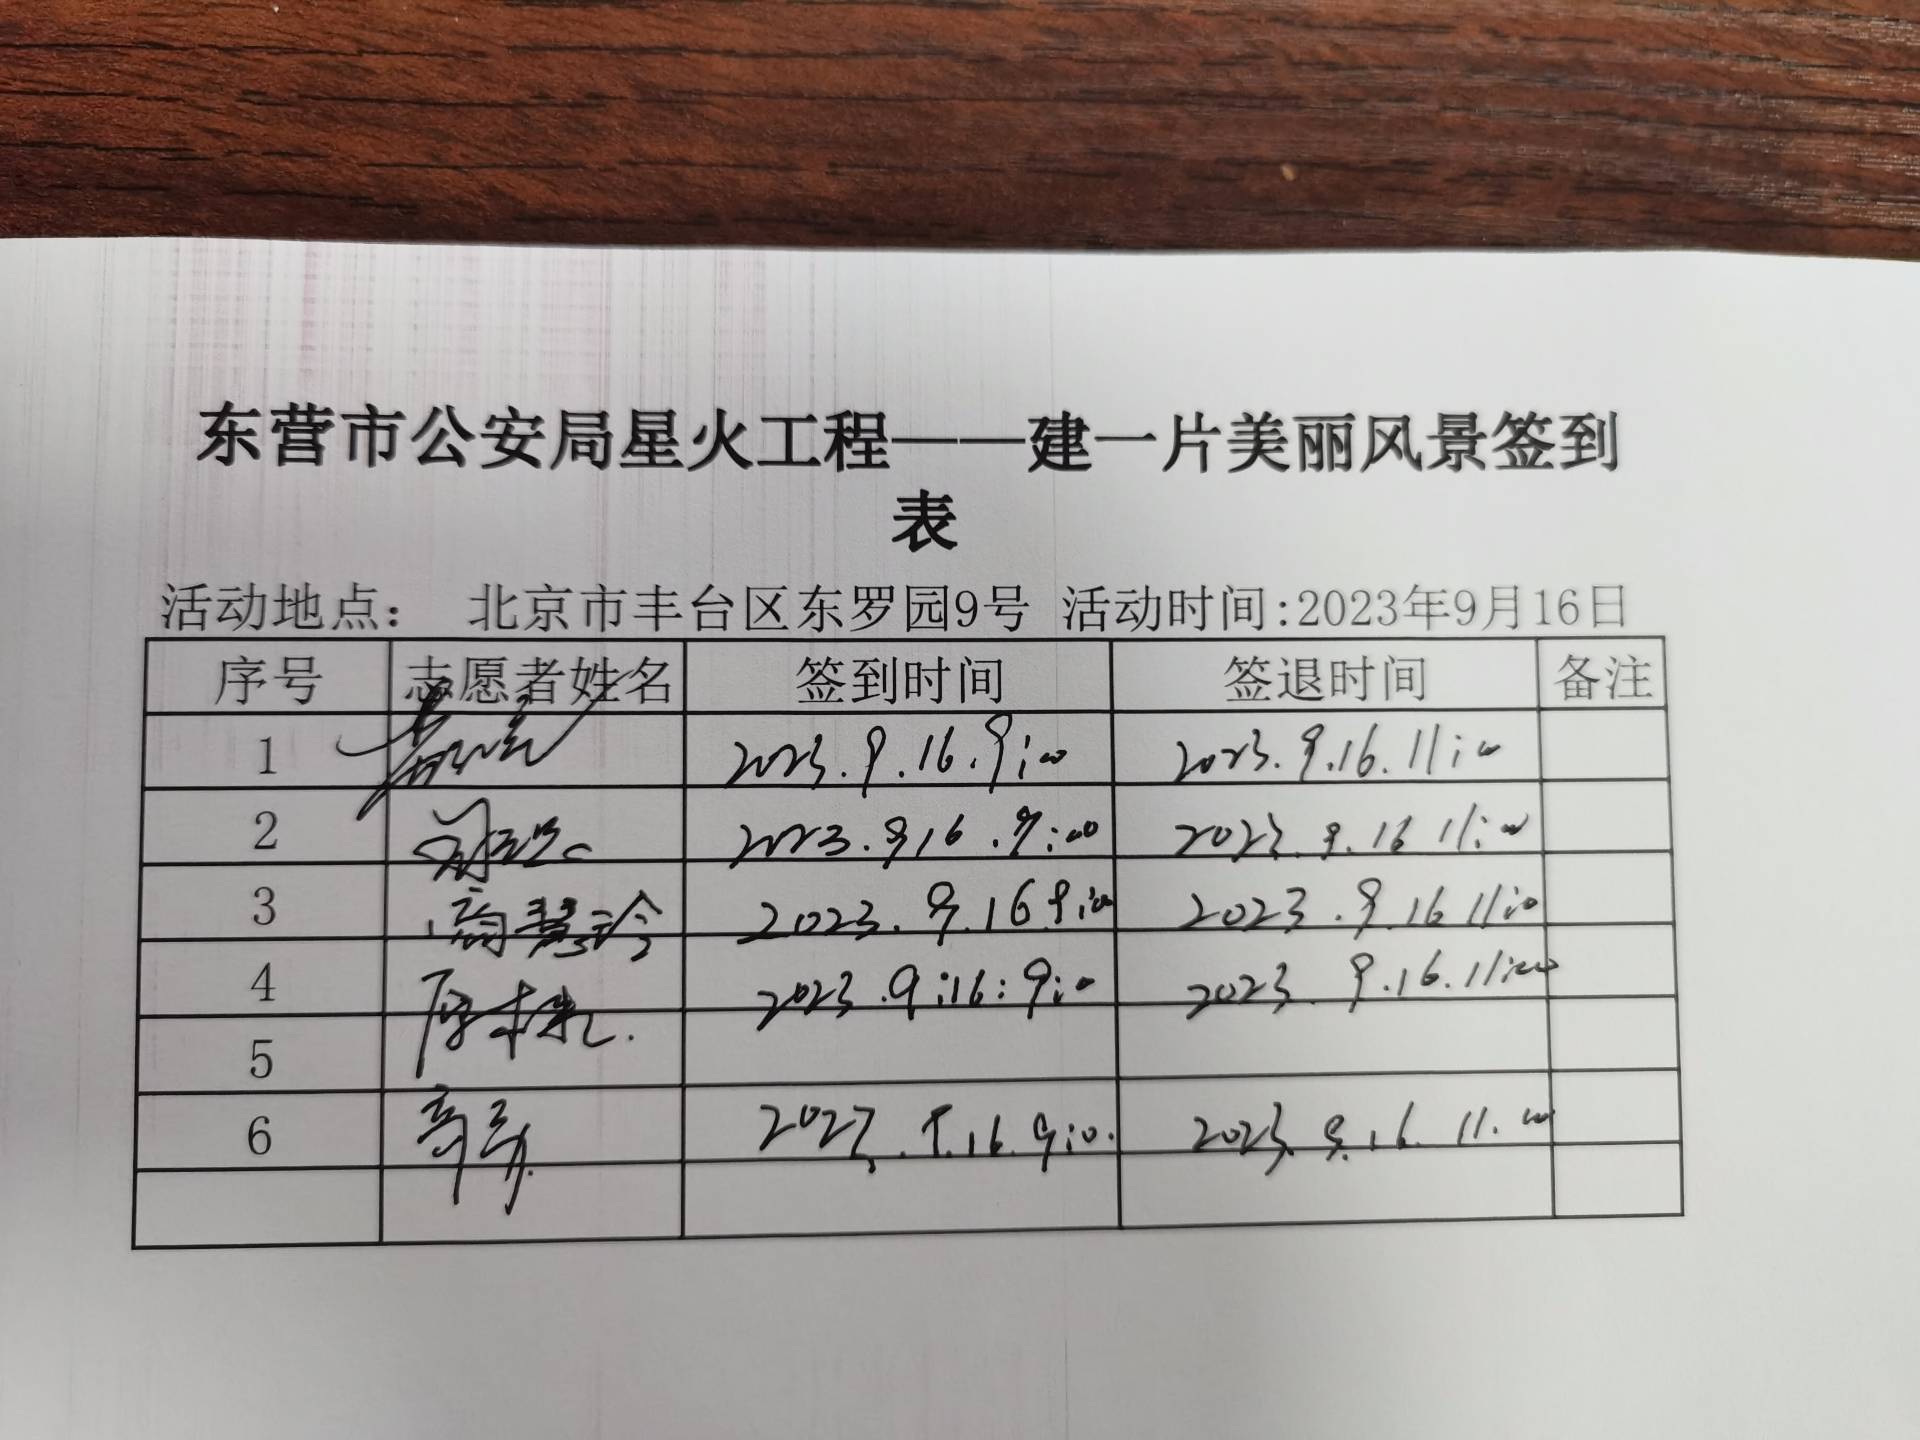 东营市公安局星火工程——建一片美丽风景签到
表
活动地点： 北京市丰台区东罗园9号 活动时间:2023年9月16日
序号 志愿者姓名 签到时间 签退时间 备注
1 2023.9.16.9:00 2023.9.16.11:00
2 2023.9.16.9:00 2023.9.16 11:00
3 高慧玲 2023.9.16 9:00 2023.9.16 11:00
4 2023.9:16:9:00 2023.9.16.11:00
5
6 9.16.9:00. 2023.9.16.11.00